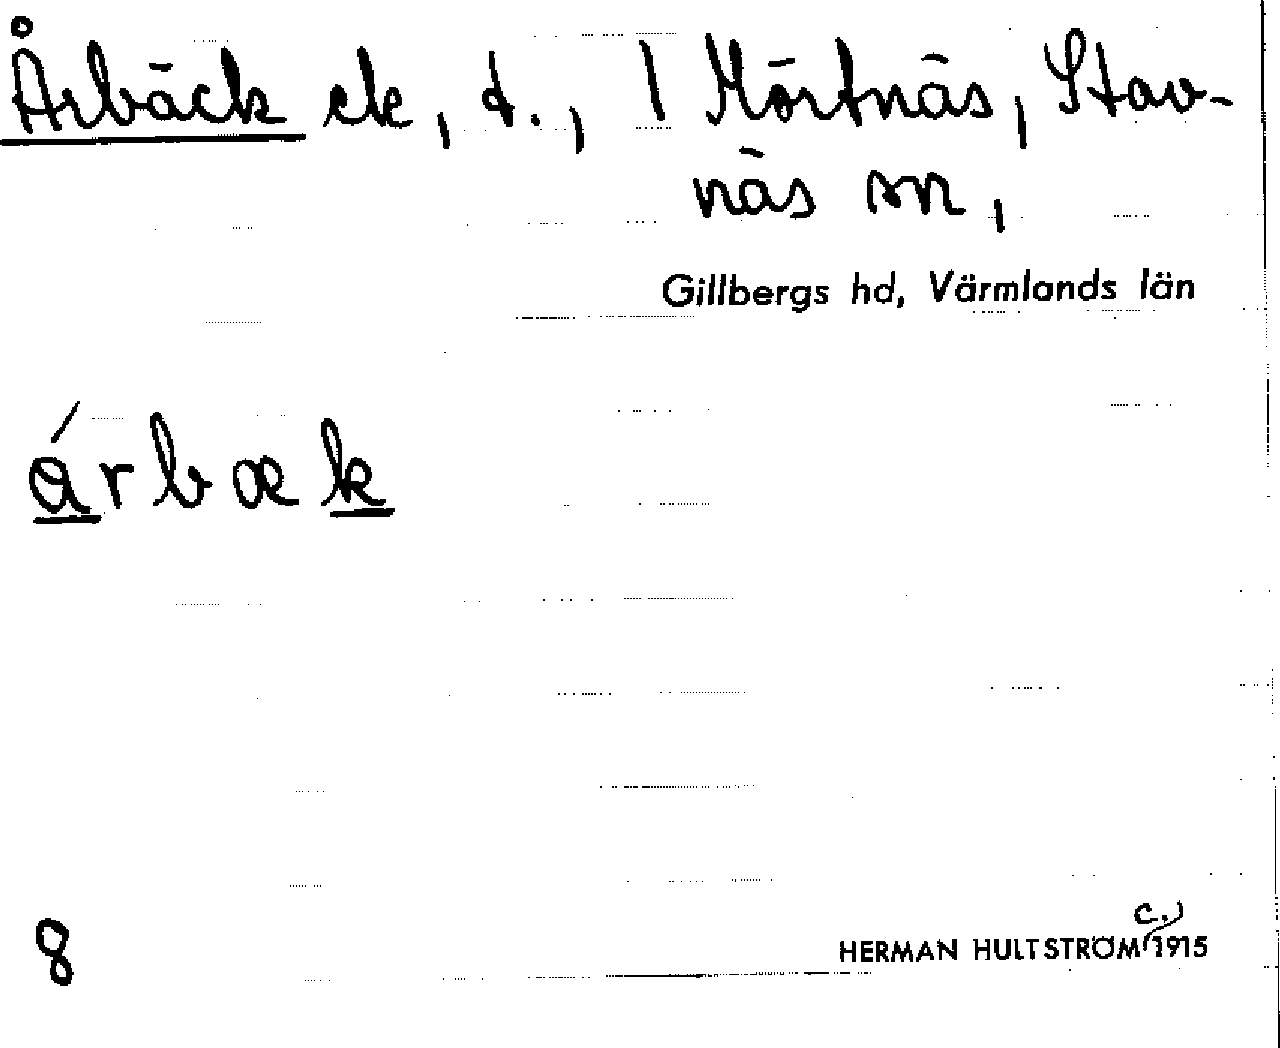 Årbäck ck, t., 1 Mörtnäs, Stav-
näs sn,
Gillbergs hd, Värmlands län
árbæk
8
c.
HERMAN HULTSTRÖM 1915